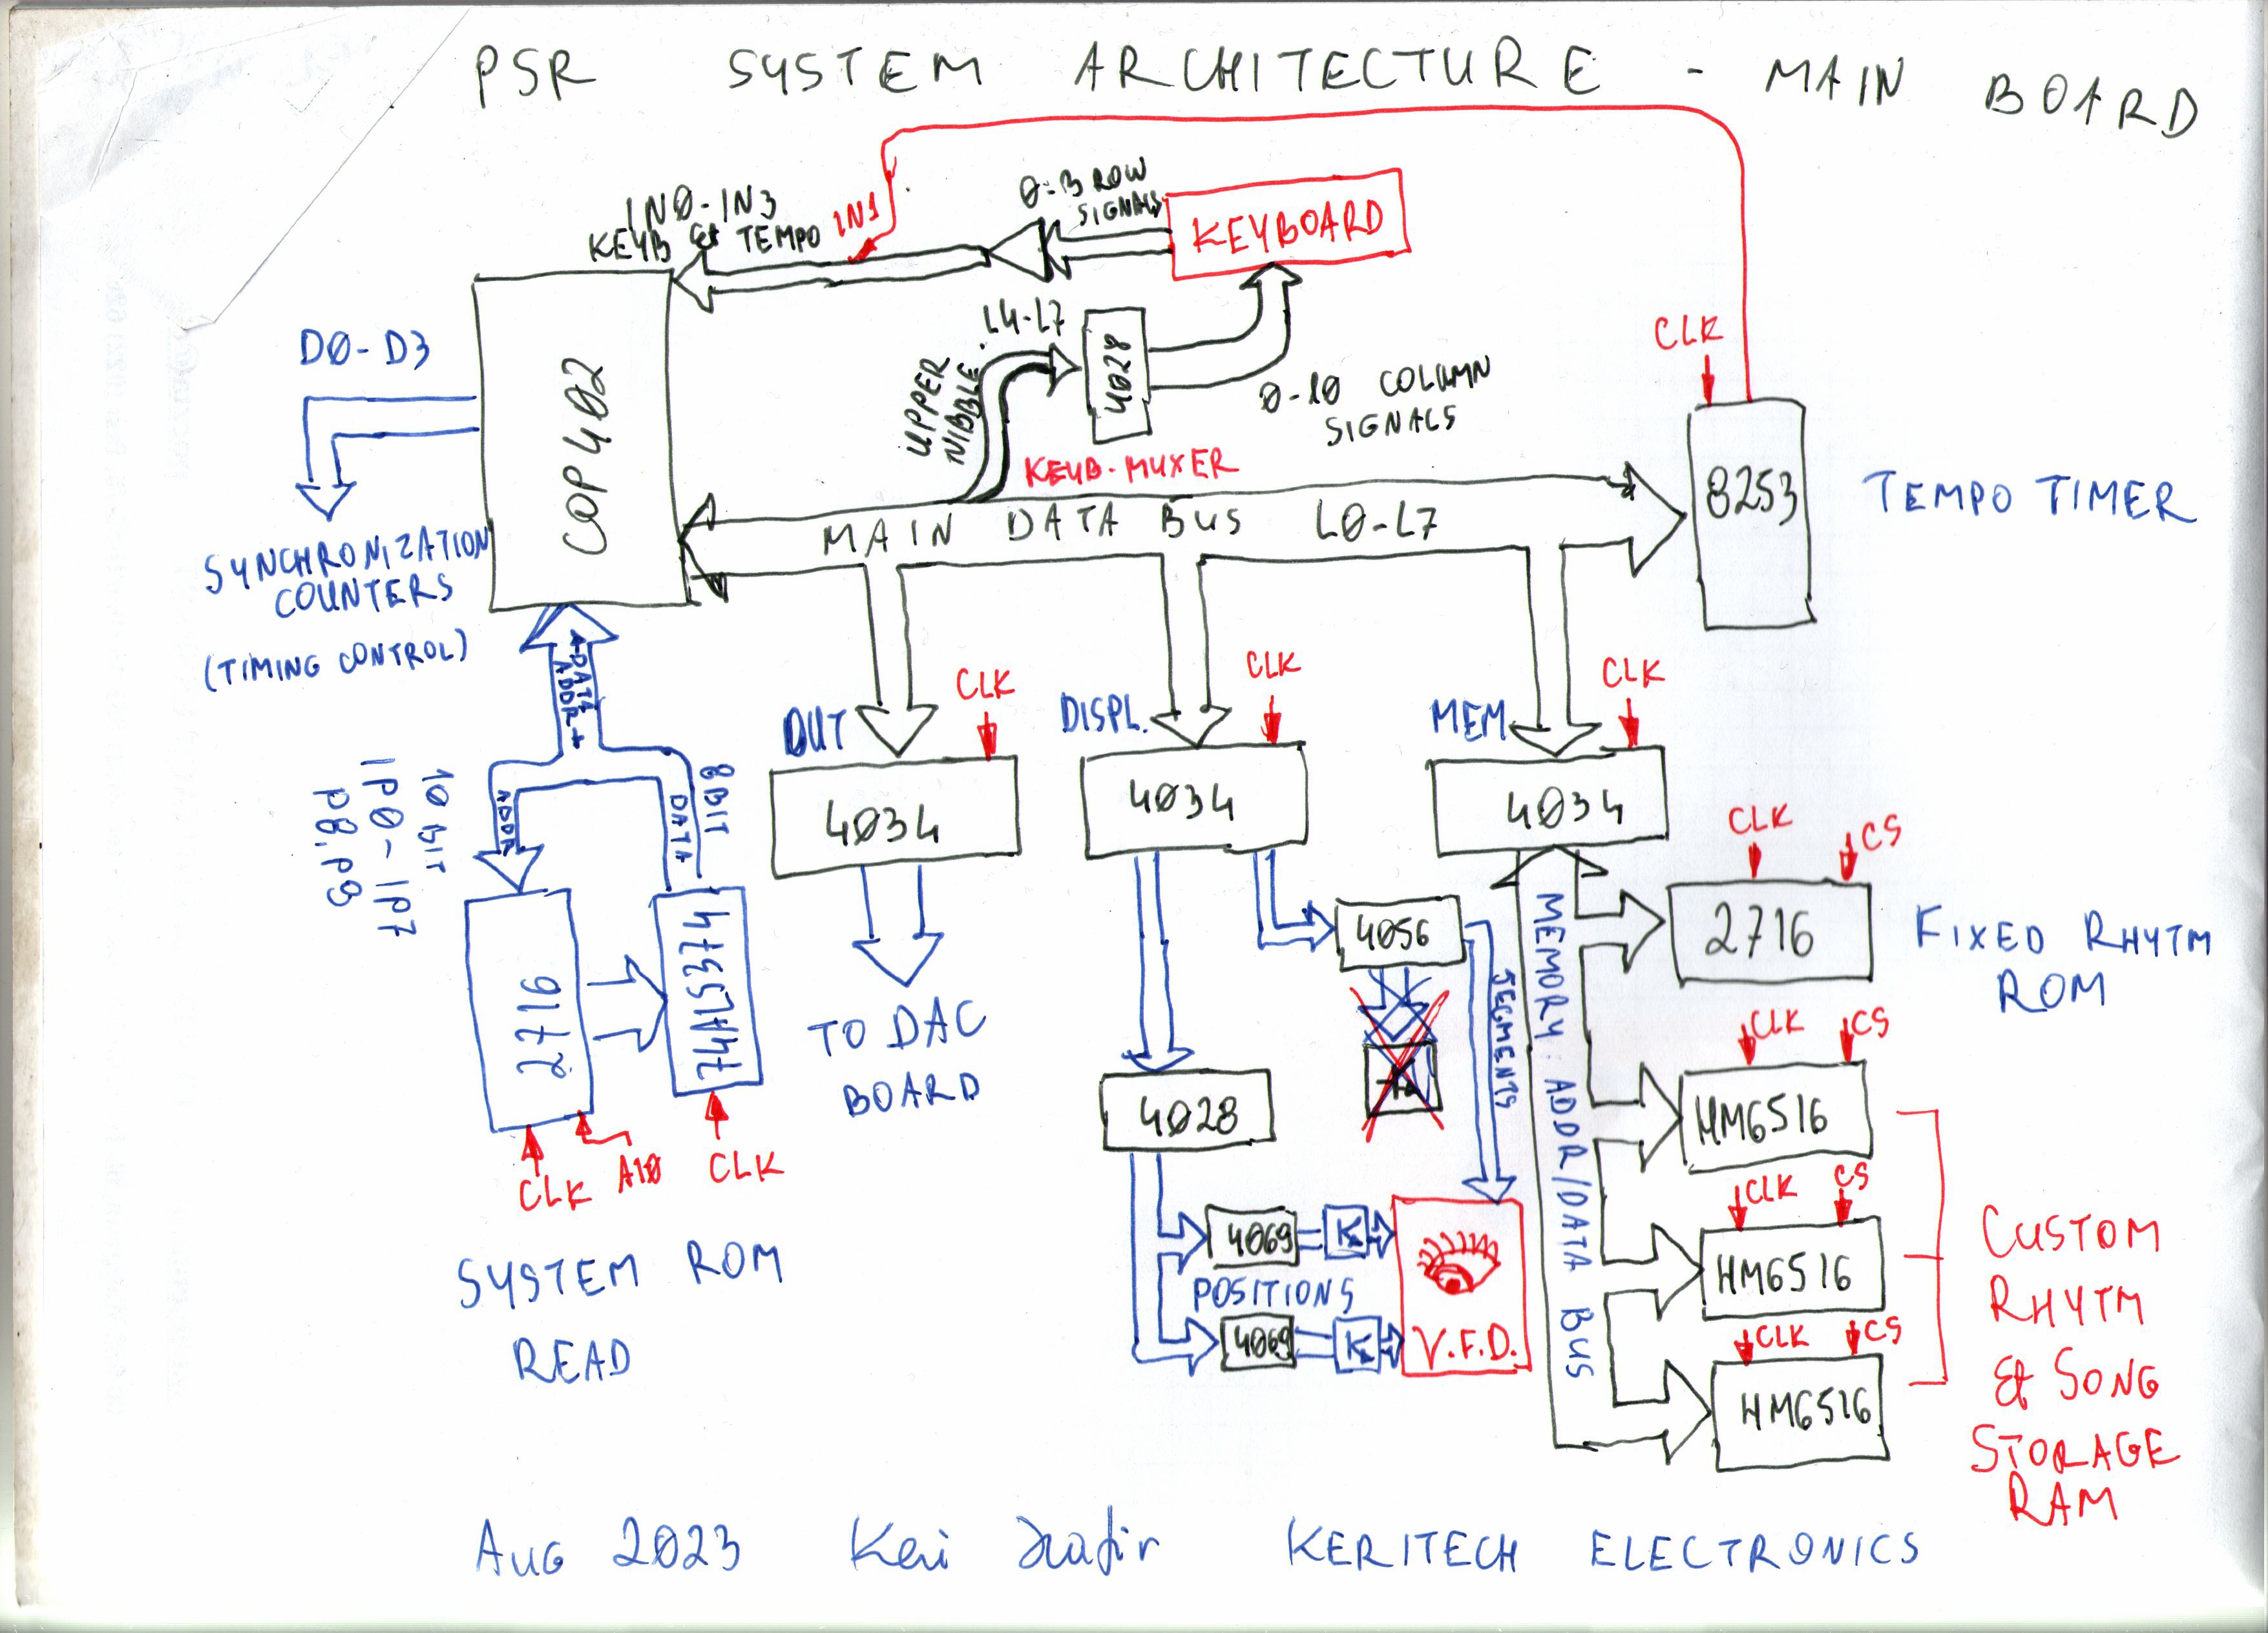 PSR SYSTEM ARCHITECTURE - MAIN BOARD
IN0-IN3
KEYB & TEMPO
IN1
0-3 ROW
SIGNALS
KEYBOARD
D0-D3
SYNCHRONIZATION
COUNTERS
(TIMING CONTROL)
COP402
UPPER
NIBBLE
L4-L7
4028
0-10 COLUMN
SIGNALS
KEYB-MUXER
CLK
8253
TEMPO TIMER
MAIN DATA BUS L0-L7
ADDR+
DATA
10 BIT
IP0-IP7
P8, P9
ADDR
DATA
8BIT
2716
74ALS374
CLK
A10
CLK
SYSTEM ROM
READ
OUT
CLK
4034
TO DAC
BOARD
DISPL.
CLK
4034
4056
SEGMENTS
4028
4069
K
POSITIONS
4069
K
V.F.D.
MEM
CLK
4034
MEMORY: ADDR/DATA BUS
CLK
CS
2716
FIXED RHYTM
ROM
CLK
CS
HM6516
CLK
CS
HM6516
CLK
CS
HM6516
CUSTOM
RHYTM
& SONG
STORAGE
RAM
AUG 2023 Keri Szafir KERITECH ELECTRONICS